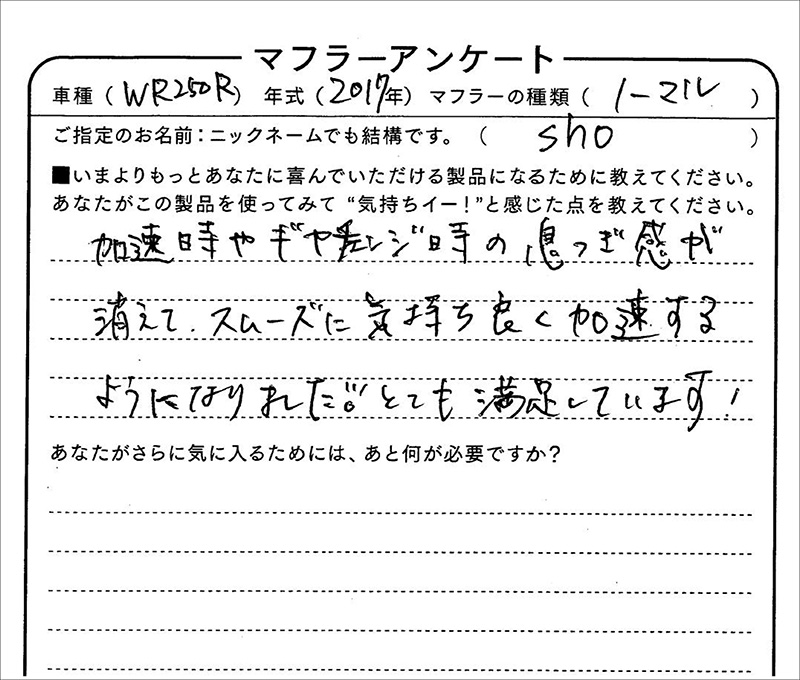 マフラーアンケート
車種（WR250R）年式（2017年）マフラーの種類（ノーマル）
ご指定のお名前：ニックネームでも結構です。（sho）
■いまよりもっとあなたに喜んでいただける製品になるために教えてください。
あなたがこの製品を使ってみて“気持ちイー！”と感じた点を教えてください。
加速時やギヤチェンジ時の息つぎ感が
消えて、スムーズに気持ち良く加速する
ようになりました!!。とても満足しています！
あなたがさらに気に入るためには、あと何が必要ですか？